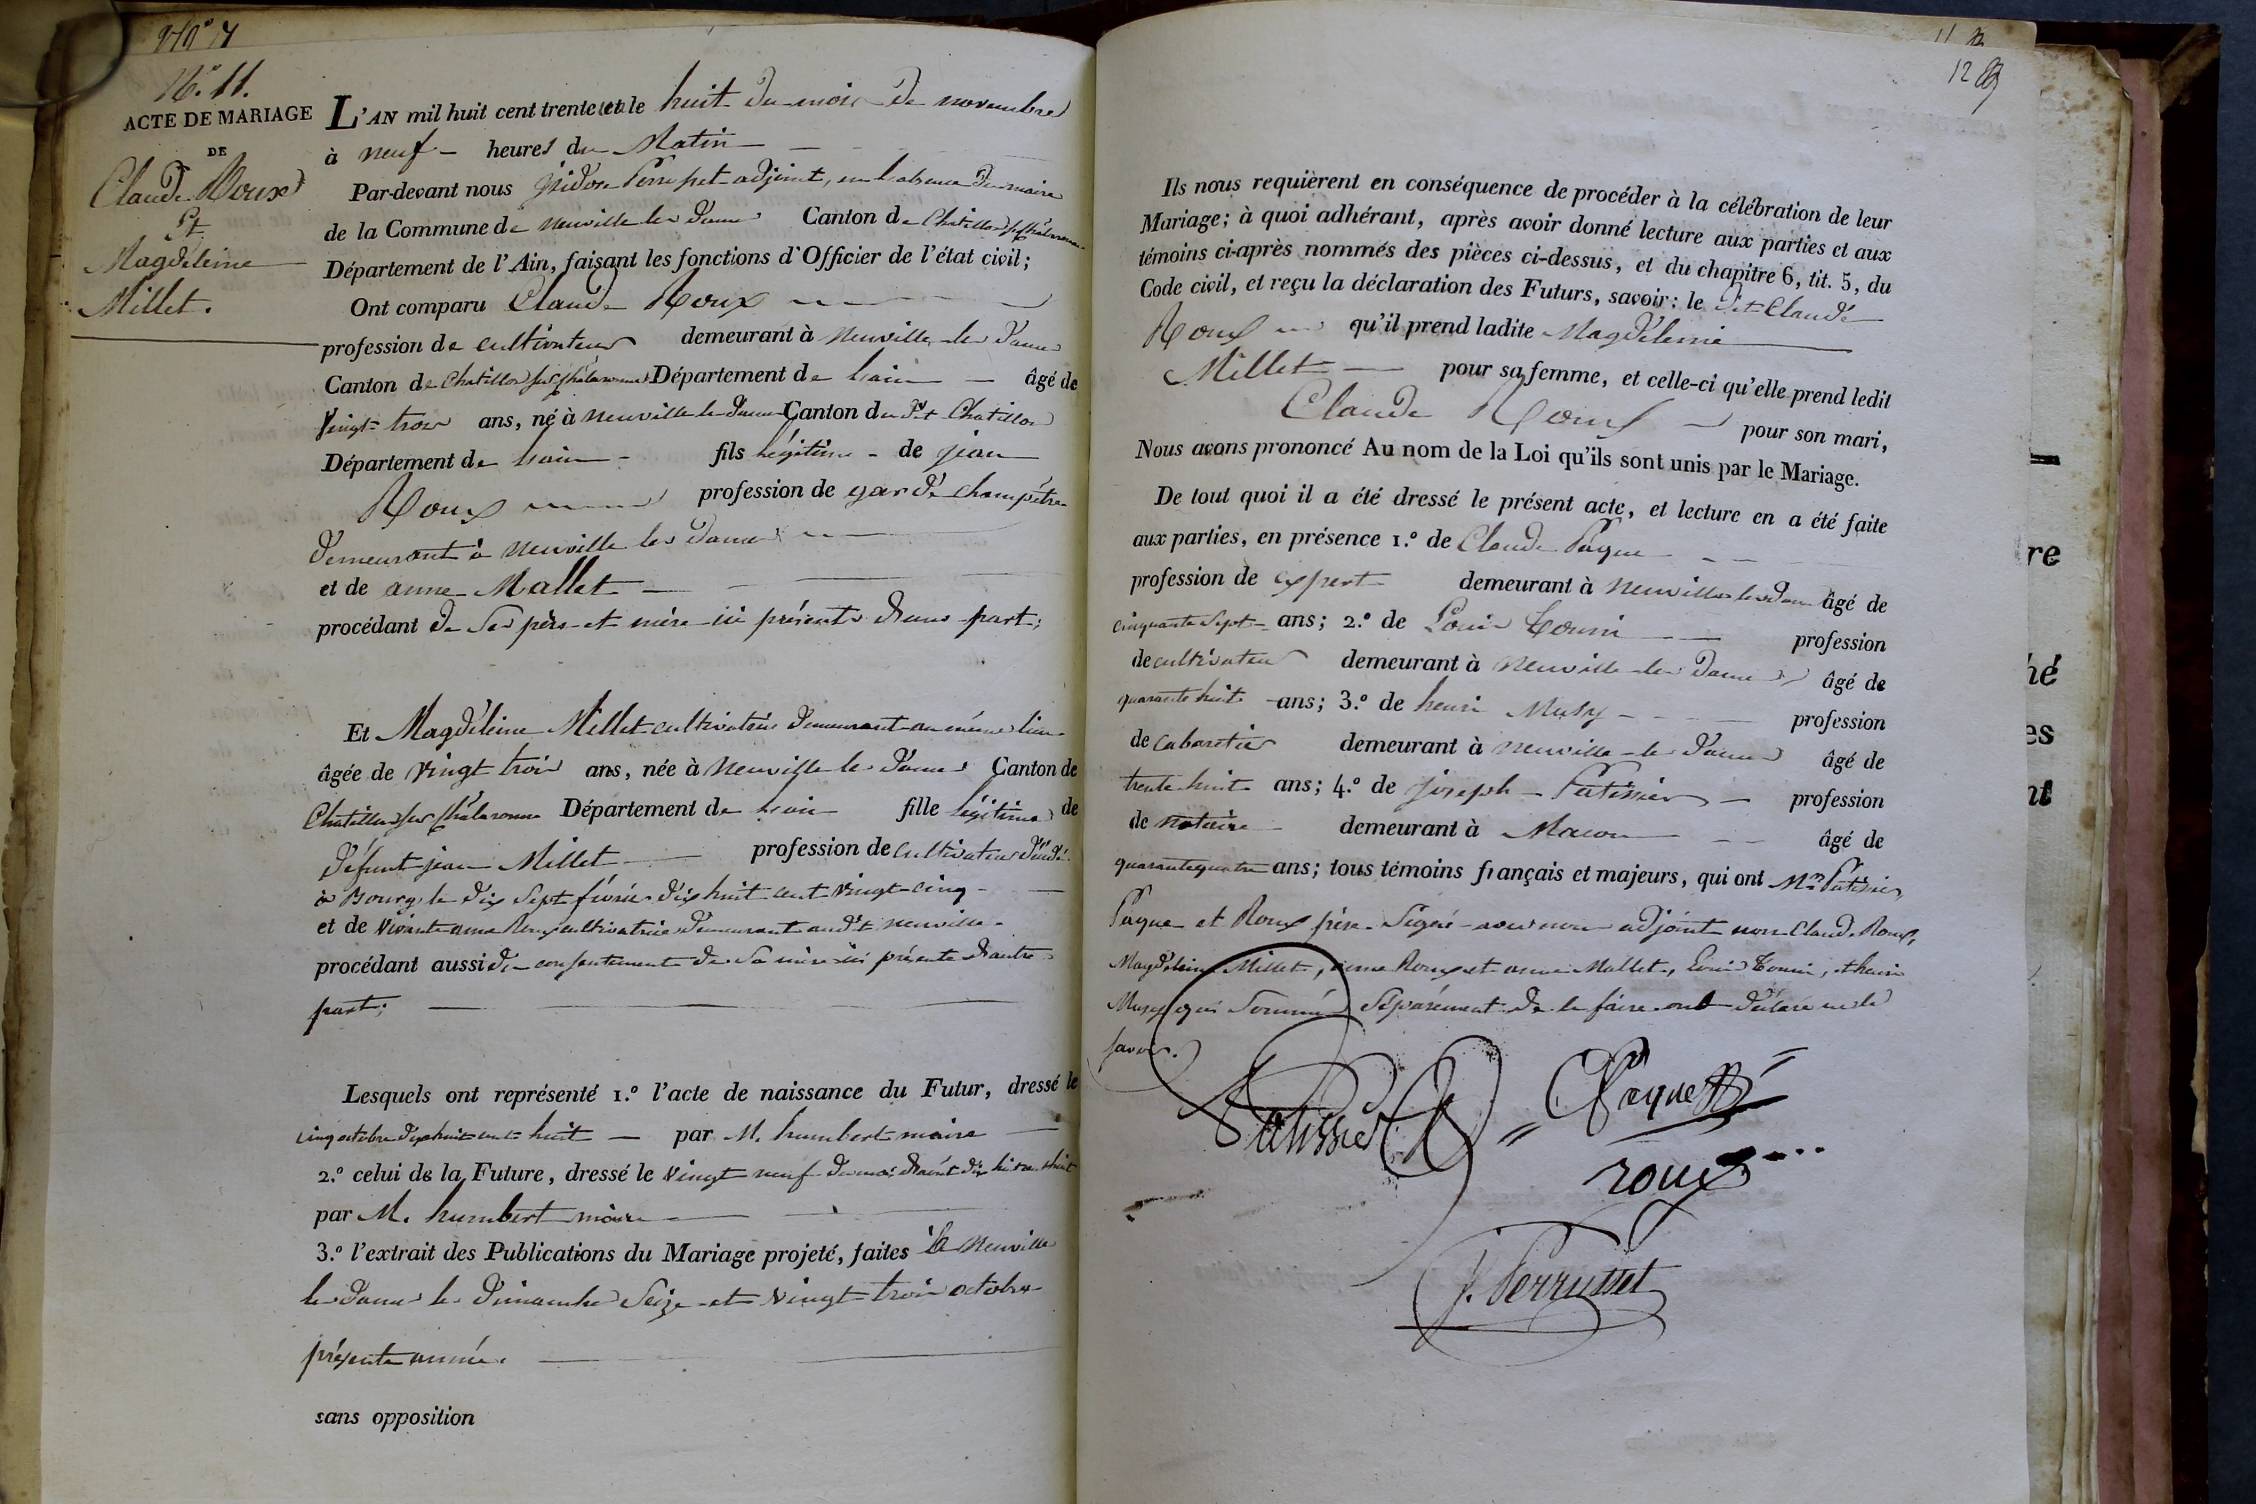 N.º 11.
ACTE DE MARIAGE
DE
Claude Roux
Et
Magdeleine
Millet.
L'AN mil huit cent trente et un le huit du mois de novembre
à neuf heures du Matin
Par-devant nous isidore Perrusset adjoint, en l'absence du maire
de la Commune de neuville les Dames Canton de Chatillon sur Chalaronne
Département de l'Ain, faisant les fonctions d'Officier de l'état civil;
Ont comparu Claude Roux
profession de cultivateur demeurant à neuville les Dames
Canton de Chatillon sur Chalaronne Département de l'ain âgé de
Vingt trois ans, né à neuville les Dames Canton du dt Chatillon
Département de l'ain fils légitime de jean
Roux profession de garde champêtre
demeurant à neuville les Dames
et de anne Mallet
procédant de ses père et mère ici présents d'une part;
Et Magdeleine Millet cultivatrice demeurant au même lieu
âgée de vingt trois ans, née à neuville les Dames Canton de
Chatillon sur Chalaronne Département de l'ain fille légitime de
défunt jean Millet profession de cultivateur décédé
à Bourg le dix sept février dix huit cent vingt cinq
et de vivante anne Roux cultivatrice demeurant audit neuville
procédant aussi du consentement de sa mère ici présente d'autre
part;
Lesquels ont représenté 1.º l'acte de naissance du Futur, dressé le
cinq octobre dix huit cent huit par M. humbert maire
2.º celui de la Future, dressé le vingt neuf du mois d'août dix huit cent huit
par M. humbert maire
3.º l'extrait des Publications du Mariage projeté, faites à neuville
les Dames les Dimanches Seize et vingt trois octobre
présente année.
sans opposition
12
Ils nous requièrent en conséquence de procéder à la célébration de leur
Mariage; à quoi adhérant, après avoir donné lecture aux parties et aux
témoins ci-après nommés des pièces ci-dessus, et du chapitre 6, tit. 5, du
Code civil, et reçu la déclaration des Futurs, savoir: le dit Claude
Roux qu'il prend ladite Magdeleine
Millet pour sa femme, et celle-ci qu'elle prend ledit
Claude Roux pour son mari,
Nous avons prononcé Au nom de la Loi qu'ils sont unis par le Mariage.
De tout quoi il a été dressé le présent acte, et lecture en a été faite
aux parties, en présence 1.º de Claude Paque
profession de expert demeurant à neuville les Dames âgé de
cinquante sept ans; 2.º de Louis profession
de cultivateur demeurant à neuville les Dames âgé de
quarante huit ans; 3.º de henri profession
de cabaretier demeurant à neuville les Dames âgé de
trente huit ans; 4.º de joseph Patissier profession
de notaire demeurant à Macon âgé de
quarante quatre ans; tous témoins français et majeurs, qui ont Mrs Patissier,
Paque et Roux père signé avec nous adjoint non Claude Roux,
Magdeleine Millet, anne Roux et anne Mallet, Louis et henri
qui sommés séparément de le faire ont déclaré ne le
savoir.
Patissier
Paque
roux
J. Perrusset